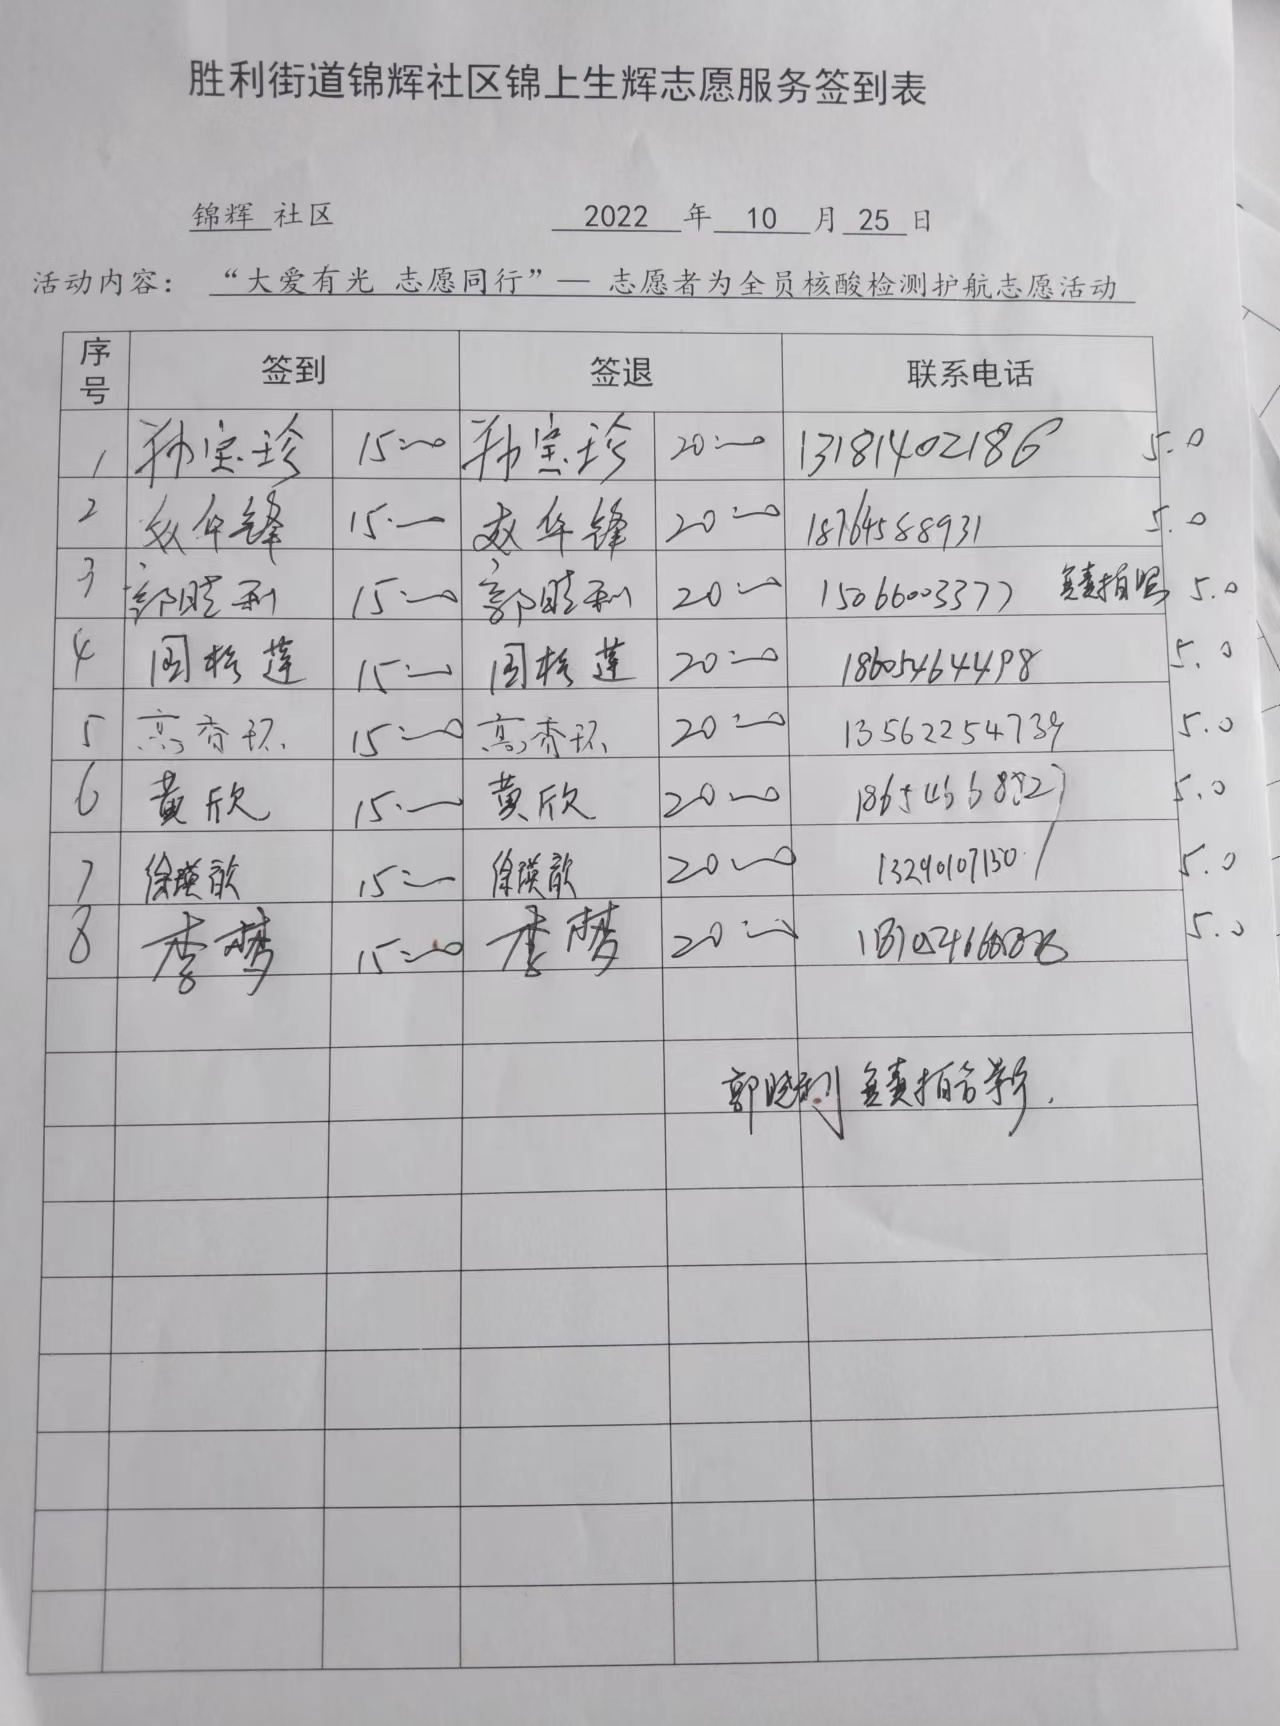 胜利街道锦辉社区锦上生辉志愿服务签到表
锦辉 社区 2022 年 10 月 25 日
活动内容: “大爱有光 志愿同行”— 志愿者为全员核酸检测护航志愿活动
序号 签到 签退 联系电话
1 孙宝珍 15:00 孙宝珍 20:00 13181402186 5.0
2 赵华锋 15:00 赵华锋 20:00 18764588931 5.0
3 郭晓利 15:00 郭晓利 20:00 15066003377 负责拍照 5.0
4 周桂莲 15:00 周桂莲 20:00 18605464498 5.0
5 高秀环 15:00 高秀环 20:00 13562254739 5.0
6 黄欣 15:00 黄欣 20:00 5.0
7 徐瑛歆 15:00 徐瑛歆 20:00 13290107130 5.0
8 李梦 15:00 李梦 20:00 5.0
郭晓利 负责拍合影.